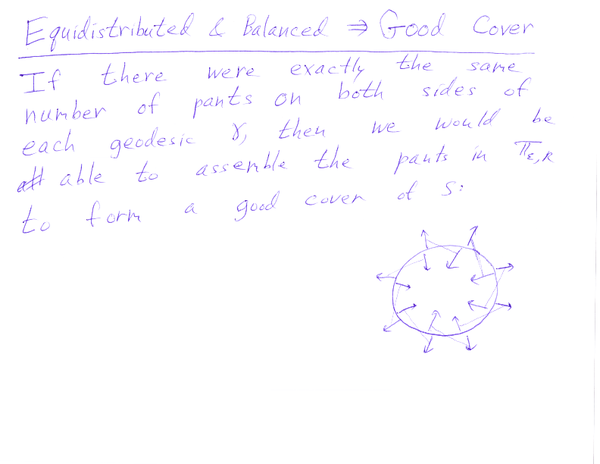 Equidistributed & Balanced ⇒ Good Cover
If there were exactly the same
number of pants on both sides of
each geodesic γ, then we would be
able to assemble the pants in Π_{ε,R}
to form a good cover of S: